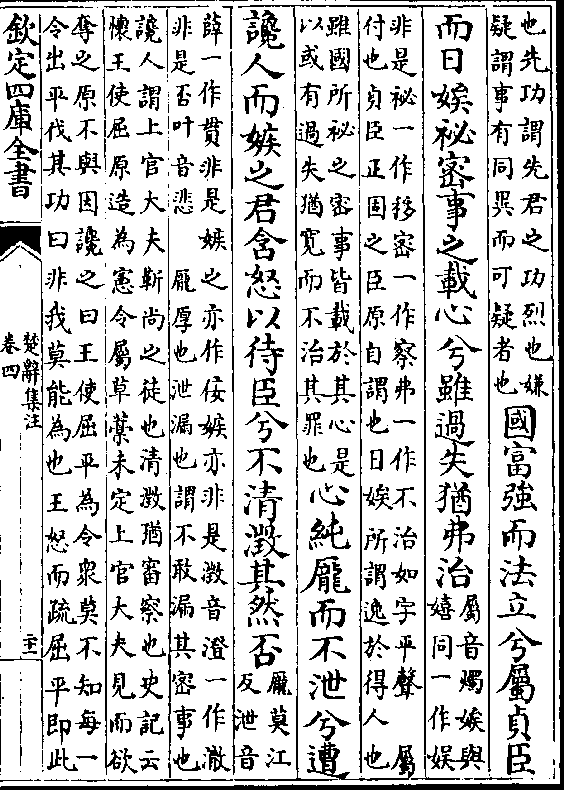 也先功謂先君之功烈也嫌
疑謂事有同異而可疑者也
國富強而法立兮屬貞臣
而日娭祕密事之載心兮雖過失猶弗治
屬音燭娭與
嬉同一作娱
非是祕一作移密一作察弗一作不治如字平聲 屬
付也貞臣正固之臣原自謂也日娭所謂逸於得人也
雖國所祕之密事皆載於其心是
以或有過失猶寛而不治其罪也
心純厖而不泄兮遭
讒人而嫉之君含怒以待臣兮不清澂其然否
厖莫江
反泄音
薛一作貫非是嫉之亦作佞嫉亦非是澂音澄一作澈
非是否叶音悲 厖厚也泄漏也謂不敢漏其密事也
讒人謂上官大夫靳尚之徒也清澂猶審察也史記云
懷王使屈原造為憲令屬草藁未定上官大夫見而欲
奪之原不與因讒之曰王使屈平為令衆莫不知每一
令出平伐其功曰非我莫能為也王怒而疏屈平即此
欽定四庫全書
楚辭集注
卷四